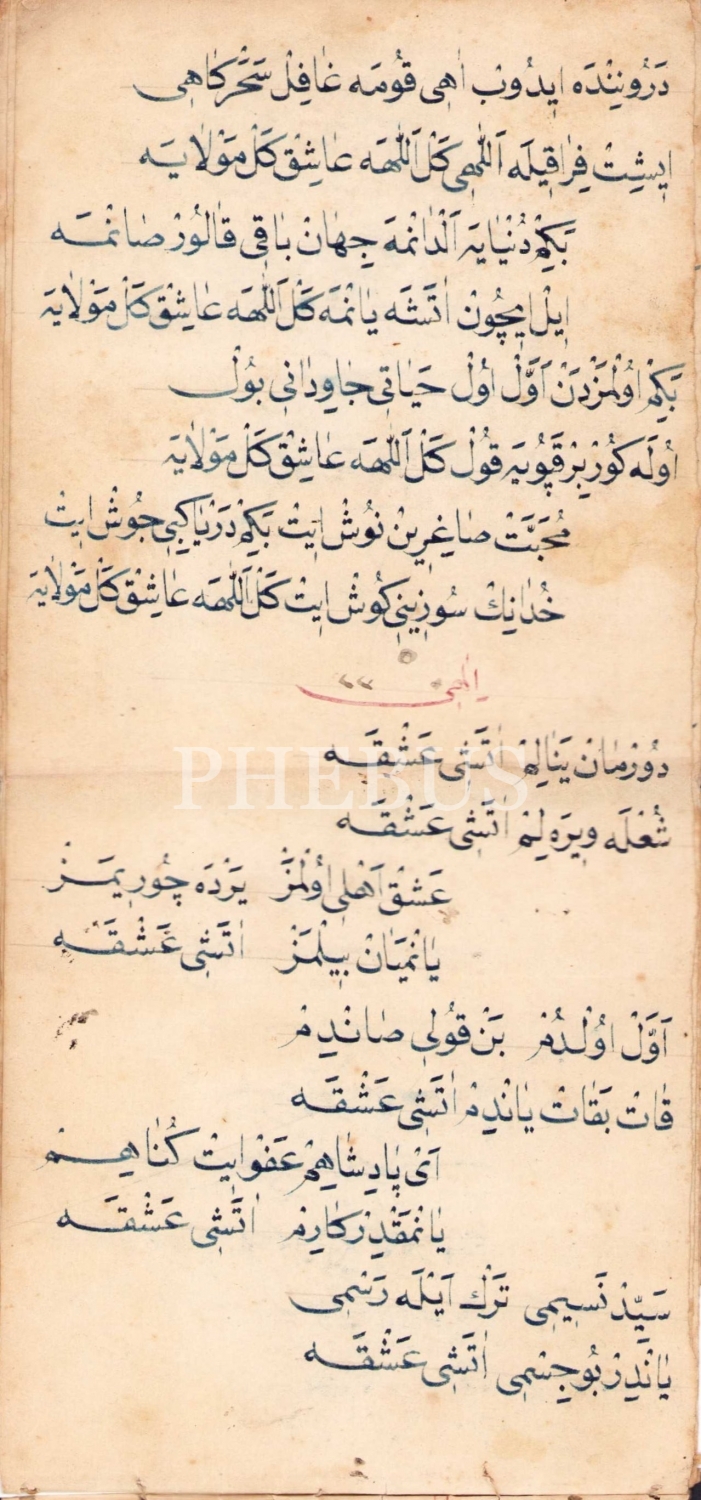 دَرُونِنْدَه اِيدُوبْ اٰهِى قُومَه غَافِلْ سَحَرْكَاهِى
اِيشِتْ فِرَاقِيلَه اَللّٰهِى كَلْ اَللّٰهَه عَاشِقْ كَلْ مَوْلَايَه
بَكِمْ دُنْيَايَه اَلْدَانْمَه جِهَانْ بَاقِى قَالُورْ صَانْمَه
اِيلْ اِيچُونْ اٰتَشَه يَانْمَه كَلْ اَللّٰهَه عَاشِقْ كَلْ مَوْلَايَه
بَكِمْ اُولْمَزْدَنْ اَوَّلْ اُولْ حَيَاتِى جَاوِدَانِى بُولْ
اُولَه كُورْ بِرْ قَپُويَه قُولْ كَلْ اَللّٰهَه عَاشِقْ كَلْ مَوْلَايَه
مُحَبَّتْ صَاغِرِينْ نُوشْ اِيتْ بَكِمْ دَرْيَا كِبِى جُوشْ اِيتْ
خُدَانِكْ سُوزِينِى كُوشْ اِيتْ كَلْ اَللّٰهَه عَاشِقْ كَلْ مَوْلَايَه
اِلٰهِى
دُورْ مَانْ يَنَالِمْ اٰتَشِى عَشْقَه
شُعْلَه وِيرَه لِمْ اٰتَشِى عَشْقَه
عَشْقْ اَهْلِى اُولْمَزْ يَرْدَه چُورِيمَزْ
يَانْمَيَانْ بِيلْمَزْ اٰتَشِى عَشْقَه
اَوَّلْ اُولْدُمْ بَنْ قُولِى صَانْدِمْ
قَاتْ بَقَاتْ يَانْدِمْ اٰتَشِى عَشْقَه
اَىْ پَادِشَاهِمْ عَفْو اِيتْ كُنَاهِمْ
يَانْمَقْدِرْ كَارِمْ اٰتَشِى عَشْقَه
سَيِّدْ نَسِيمِى تَرْكْ اَيْلَه رَسْمِى
يَانْدِرْ بُو جِسْمِى اٰتَشِى عَشْقَه
PHEBUS